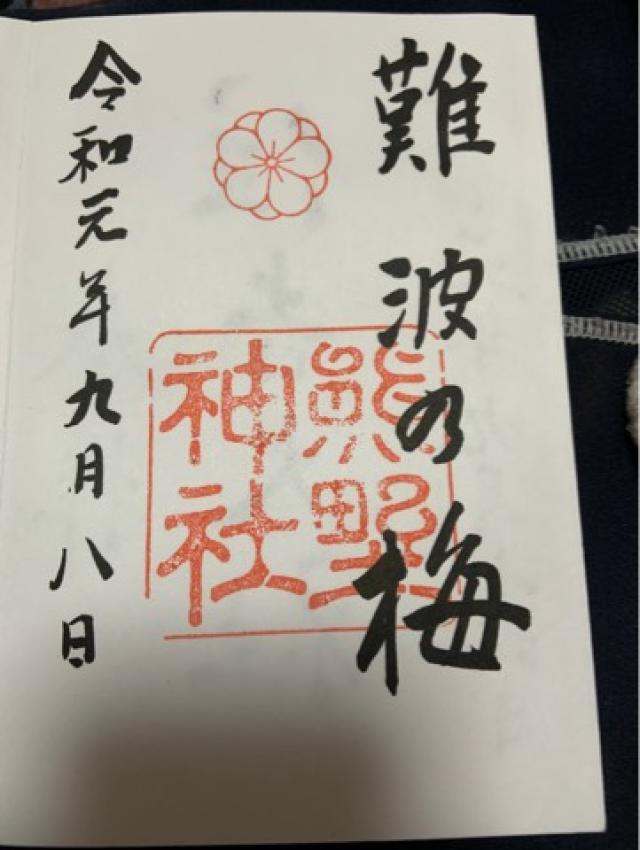 難波の梅
熊野
神社
令和元年九月八日